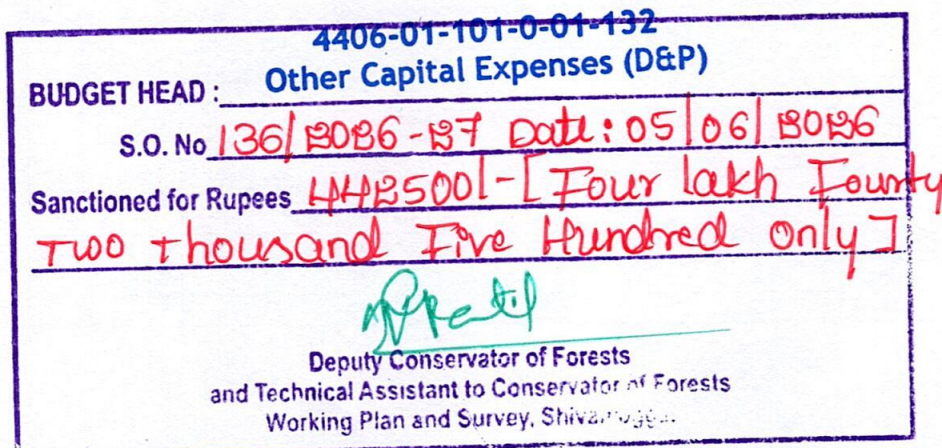 4406-01-101-0-01-132
BUDGET HEAD : Other Capital Expenses (D&P)
S.O. No 136/2026-27 Date: 05/06/2026
Sanctioned for Rupees 442500/- [Four lakh Fourty
Two Thousand Five Hundred Only]
Deputy Conservator of Forests
and Technical Assistant to Conservator of Forests
Working Plan and Survey, Shivamogga.